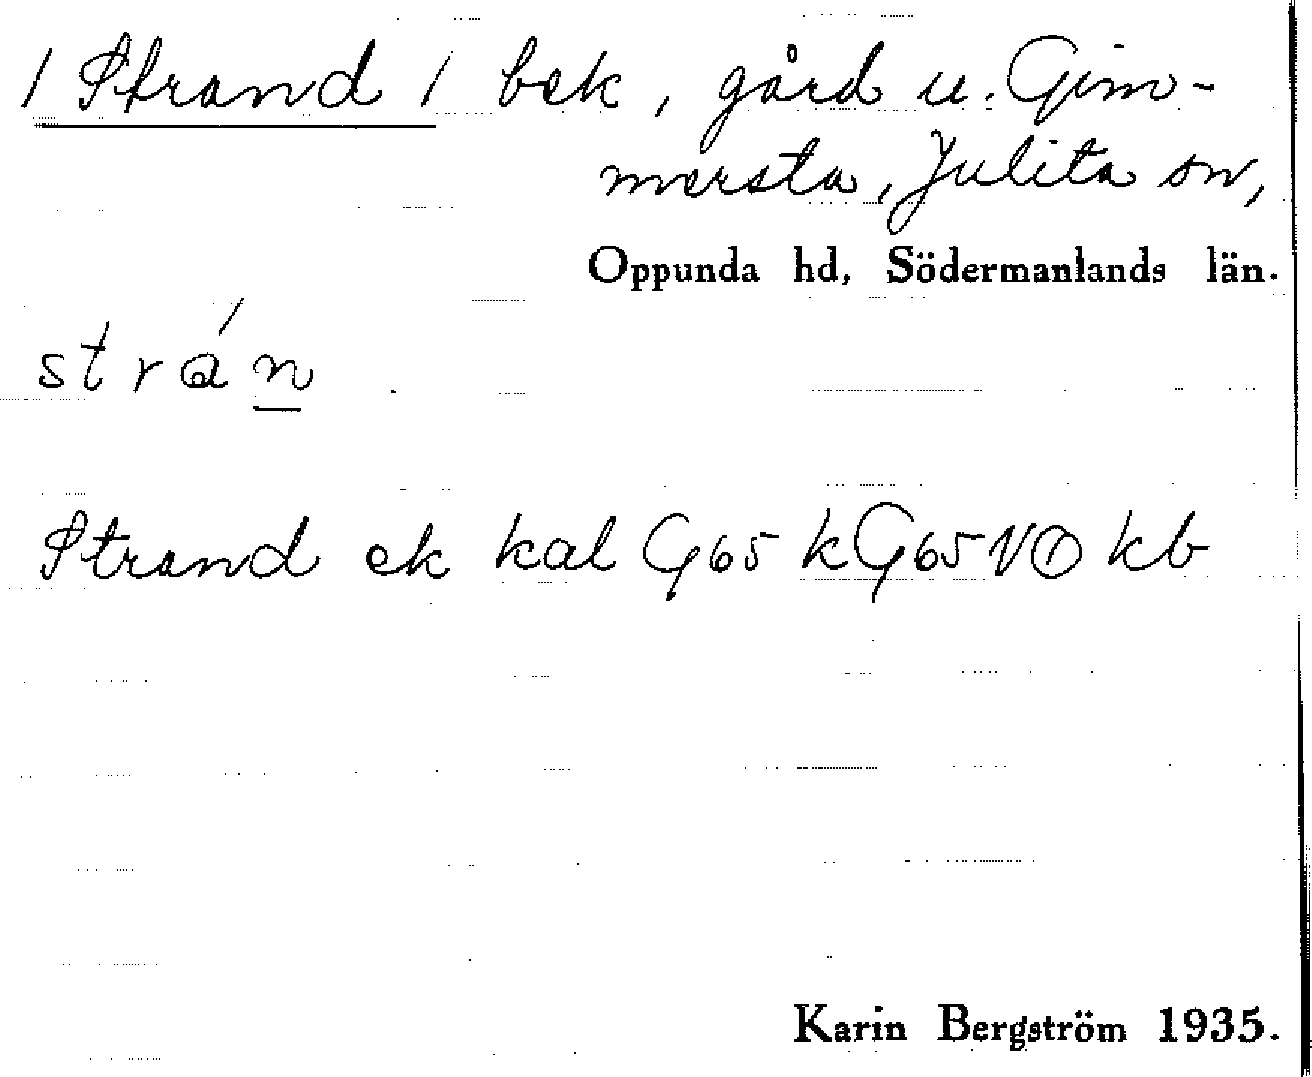 / Strand / bek, gård u. Gim-
mersta, Julita sn,
Oppunda hd, Södermanlands län.
strán
Strand ek kal G65 k G65 NO kb
Karin Bergström 1935.